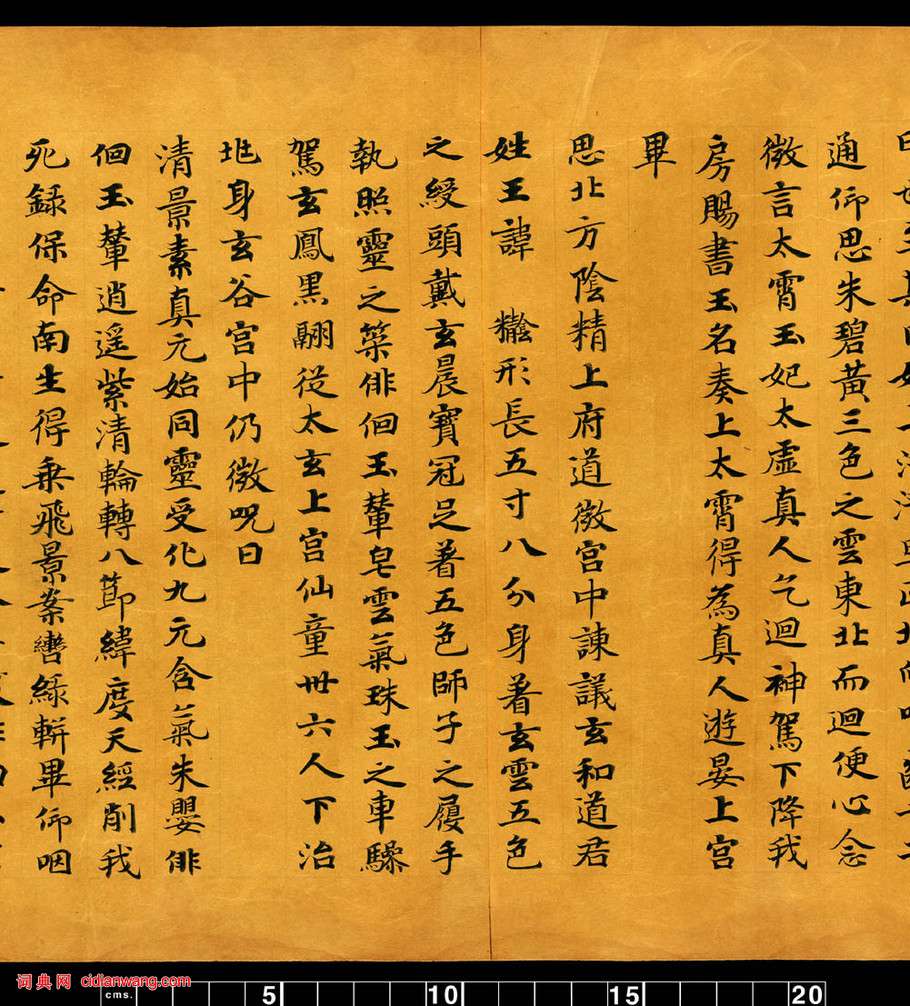 通仰思朱碧黃三色之雲東北而迴便心念
微言太霄玉妃太虛真人乞迴神駕下降我
房賜書玉名奏上太霄得為真人遊晏上宮
畢
思北方陰精上府道微宮中諫議玄和道君
姓王諱 形長五寸八分身著玄雲五色
之綬頭戴玄晨寶冠足著五色師子之履手
執照靈之䇿俳佪玉輦皂雲氣珠玉之車驂
駕玄鳳黑翮從太玄上宮仙童卅六人下治
地身玄谷宮中仍微呪曰
清景素真元始同靈受化九元含氣朱嬰俳
佪玉輦逍遥紫清輪轉八節緯度天經削我
死録保命南生得乗飛景案轡緑軿畢仰咽
词典网 cidianwang.com
cms. 5 10 15 20